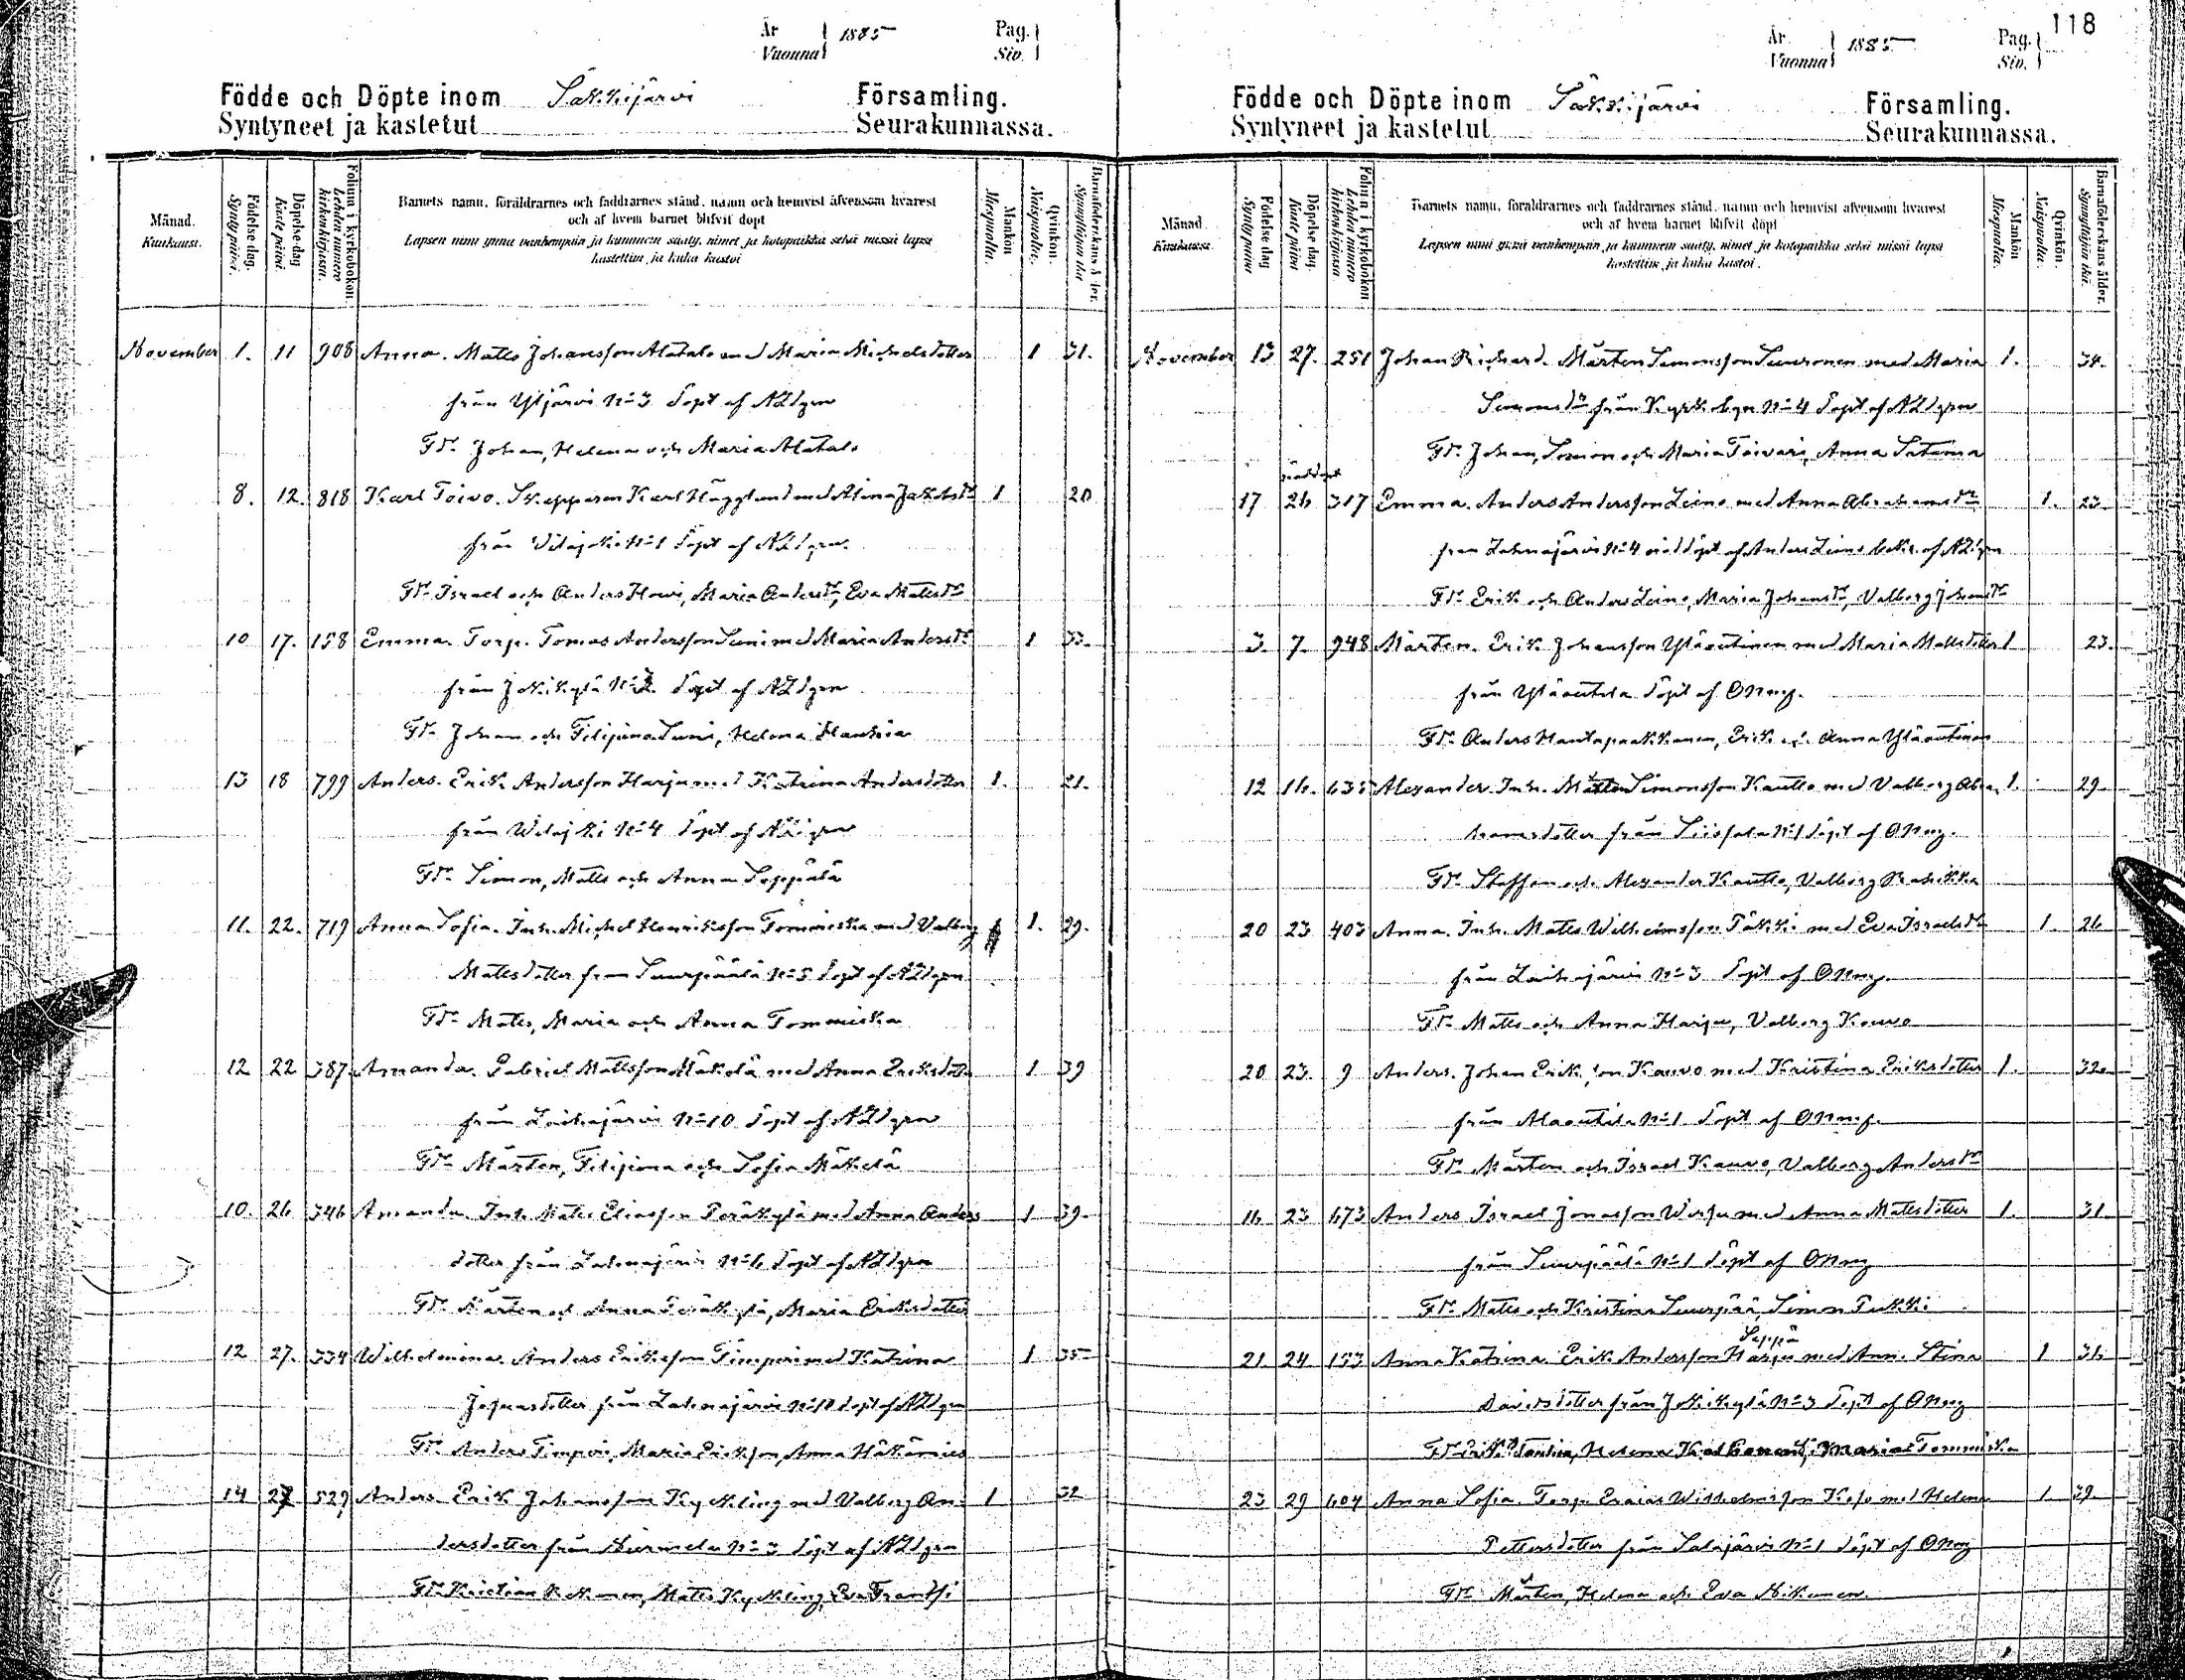 År 1885 Pag.
Vuonna Siv.
Födde och Döpte inom Säkkijärvi Församling.
Syntyneet ja kastetut Seurakunnassa.
Månad. Kuukausi.
Födelse dag. Synty päivä.
Döpelse dag Kaste päivä.
Folium i kyrkoboken. Lehden numero kirkonkirjassa.
Barnets namn, föräldrarnes och faddrarnes stånd, namn och hemvist äfvensom hvarest
och af hvem barnet blifvit döpt
Lapsen nimi ynnä vanhempain ja kummein sääty, nimet ja kotopaikka sekä missä lapsi
kastettiin ja kuka kastoi
Mankön Miespuolia.
Qvinkön. Naispuolia.
Barnaföderskans ålder. Synnyttäjän ikä
November 1. 11 908 Anna. Matts Johansson Alatalo med Maria Michelsdotter 1 31.
från Yljärvi No 3 döpt af
Fdr Johan, Helena och Maria Alatalo
8. 12. 818 Karl Toivo. Skepparen Karl Hägglund med Alina Jakobsdr 1 20
från Vilajoki No 1 döpt af
Fdr Israel och Anders Howi, Maria Andersdr, Eva Mattsdr
10 17. 158 Emma. Torp. Tomas Andersson Suni med Maria Andersdr 1 33.
från Jokikylä No 2. döpt af
Fdr Johan och Filipina Suni, Helena Haukia
13 18 799 Anders. Erik Andersson Harju med Katrina Andersdotter 1. 21.
från Wilajoki No 4 döpt af
Fdr Simon, Matts och Anna Seppälä
11. 22. 719 Anna Sofia. Inh. Michel Henriksson Tommiska med Valborg 1. 29.
Mattsdotter från Suurpäälä No 5 döpt af
Fdr Matts, Maria och Anna Tommiska
12 22 387 Amanda. Gabriel Mattsson Mäkelä med Anna Eriksdotter 1 39
från Laihajärvi No 10 döpt af
Fdr Mårten, Filipina och Sofia Mäkelä
10. 26 346 Amanda. Inh. Matts Eliasson Peräkylä med Anna Anders 1 39.
dotter från Lahnajärvi No 6 döpt af
Fdr Mårten och Anna Peräkylä, Maria Eriksdotter
12 27. 334 Wilhelmina. Anders Eriksson Timperi med Katrina 1 35
Johansdotter från Lahnajärvi No 10 döpt af
Fdr Anders Timperi, Maria Eriksson, Anna Häkämies
14 27 529 Anders. Erik Johansson Kyckling med Valborg An- 1 32
dersdotter från Nurmela No 3 döpt af
Fdr Kristian Kekonen, Matts Kyckling, Eva Frantsi
118
År 1885 Pag.
Vuonna Siv.
Födde och Döpte inom Säkkijärvi Församling.
Syntyneet ja kastetut Seurakunnassa.
Månad. Kuukausi.
Födelse dag Synty päivä
Döpelse dag. Kaste päivä
Folium i kyrkoboken Lehden numero kirkonkirjassa.
Barnets namn, föräldrarnes och faddrarnes stånd, namn och hemvist äfvensom hvarest
och af hvem barnet blifvit döpt
Lapsen nimi ynnä vanhempain ja kummein sääty, nimet ja kotopaikka sekä missä lapsi
kastettiin ja kuka kastoi.
Mankön Miespuolia.
Qvinkön. Naispuolia.
Barnaföderskans ålder. Synnyttäjän ikä.
November 13 27. 251 Johan Richard. Mårten Simonsson Suuronen med Maria 1. 34.
Simonsdr från Kyrkobyn No 4 döpt af
Fdr Johan, Simon och Maria Toivari, Anna Satama
nöddöpt
17 26 317 Emma. Anders Andersson Leino med Anna Abrahamsdr 1. 23.
från Lahnajärvi No 4 nöddöpt af Anders Leino bekr. af
Fdr Erik och Anders Leino, Maria Johansdr, Valborg Johansdr
3. 7. 948 Mårten. Erik Johansson Yläoutinen med Maria Mattsdotter 1 23.
från Yläoutila döpt af
Fdr Anders Hautapaakkanen, Erik och Anna Yläoutinen
12 16. 635 Alexander. Inh. Mårten Simonsson Kautto med Valborg Abra- 1. 29.
hamsdotter från Siispala No 1 döpt af
Fdr Staffan och Alexander Kautto, Valborg Rasikka
20 23 403 Anna. Inh. Matts Wilhelmsson Pukki med Eva Israelsdr 1. 26
från Laihajärvi No 3 döpt af
Fdr Matts och Anna Harju, Valborg Kouvo
20 23. 9 Anders. Johan Eriksson Kauvo med Kristina Eriksdotter 1. 32.
från Alaoutila No 1 döpt af
Fdr Mårten och Israel Kauvo, Valborg Andersdr
16 23 673 Anders. Israel Jonasson Worsu med Anna Mattsdotter 1. 31.
från Suurpäälä No 1 döpt af
Fdr Matts och Kristina Suurpää, Simon Pukki
Seppä
21 24 153 Anna Katrina. Erik Andersson Harju med Anna Stina 1 36.
Davidsdotter från Jokikylä No 3 döpt af
Fdr Erik Haukia, Helena Maria Tommiska
23 29 604 Anna Sofia. Torp. Esaias Wilhelmsson Koso med Helena 1 39.
Pettersdotter från Salajärvi No 1 döpt af
Fdr Mårten, Helena och Eva Nikunen.